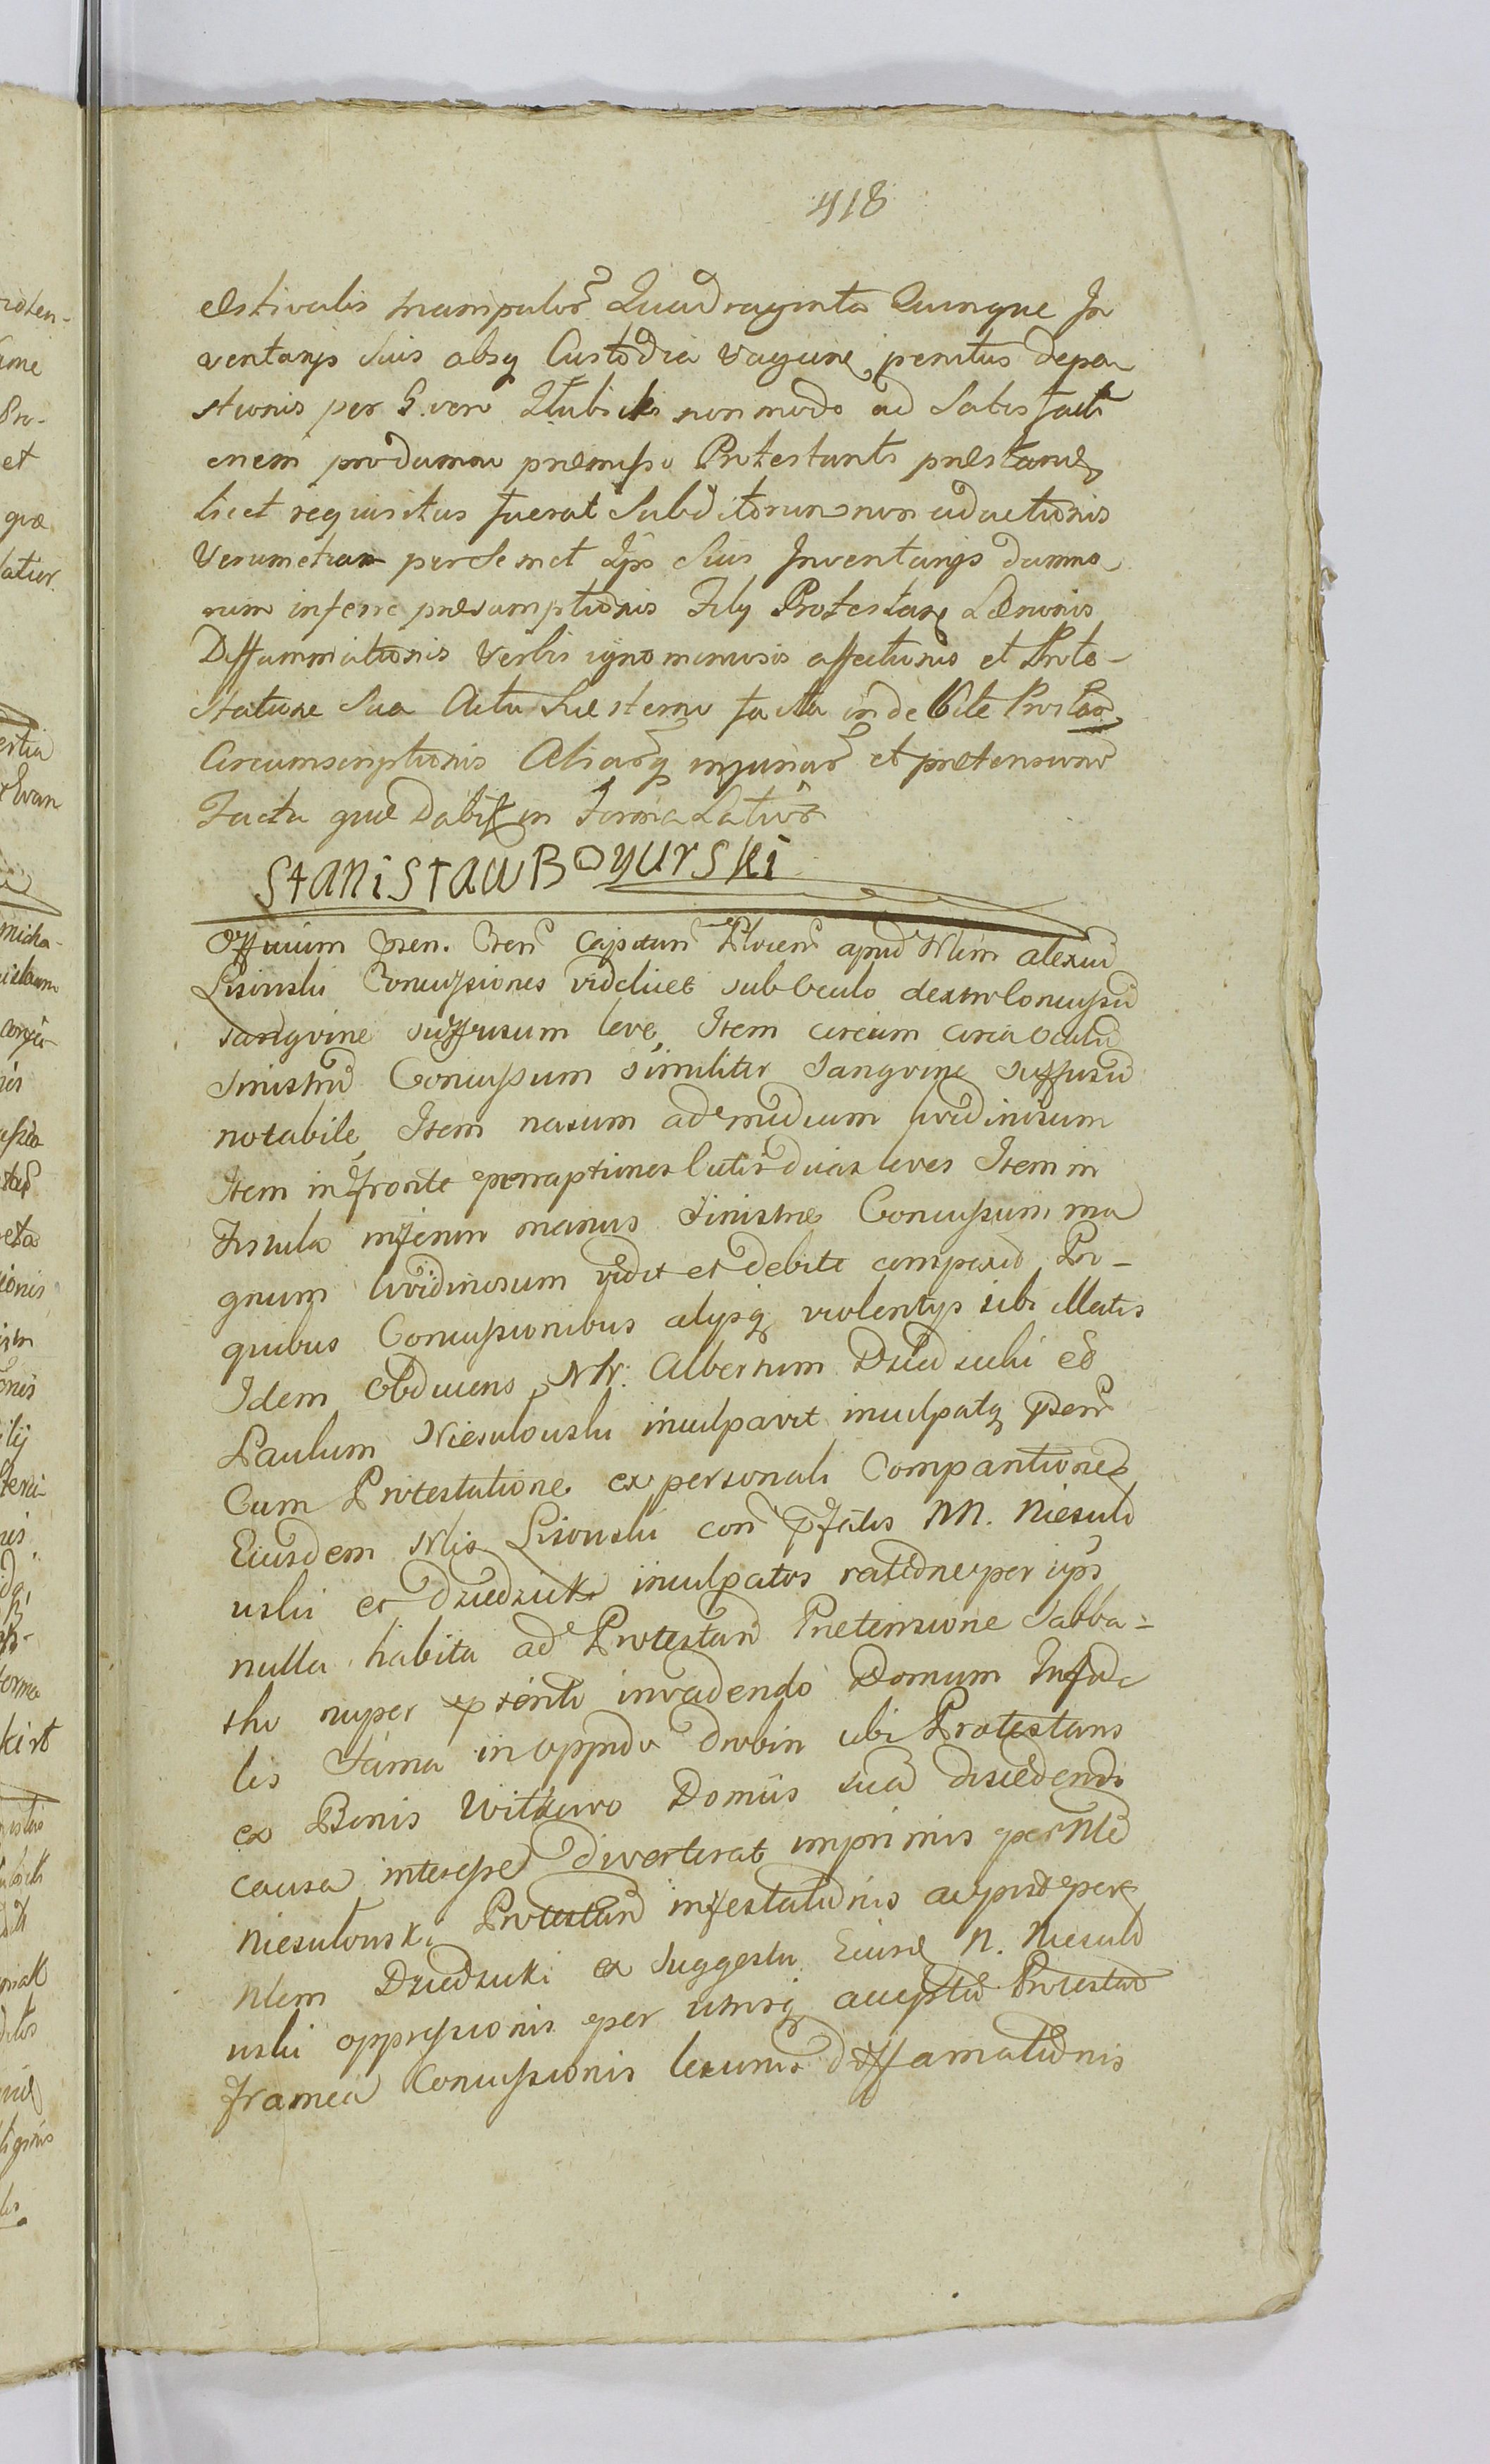 418
Estivalis manipulor Quadraginta Quinque In
ventarijs Suis absq Custodia vagan penitus depa
stionis per G. vero non modo ad Satisfacti
onem pro damno præmisso Protestanti præstand
licet requisitus fuerat Subditorum non adactionis
Verumetiam per Semet Ips Suis Inventarijs damno
rum inferre præsumptionis Filij Protestan Læsionis
Diffammationis Verbis ignominiosis affectionis et Prote-
statione Sua Actu facta indebite Protan
Circumscriptionis Aliarq injuriar et prætensionu
Facta quæ Dabit in Forma Latior
StaniSław BoyurSki
Officium pñn. Cren Capitan Plocen apud Nlem alexiu
Lisouski Concussiones videlicet sub Oculo dextro Concussu
sangvine suffusum leve, Item circum circa oculu
Sinistru Concussum similiter Sangvine suffusu
notabile, Item nasum ad medium lividinosum
Item in fronte duas leves Item in
Fistula inferiori manus Sinistræ Concussum ma
gnum lividinosum vidit et debite comperit Pro
quibus Concussionibus alijsq violentijs sibi illatis
Idem Obducens NN. Albertum Dziedzicki et
Paulum Niesulouski inculpavit inculpatq pñn
Cum Protestatione ex personali Comparitione
Eiusdem Nlis Lisouski con pfatos NN. Niesulo
uski et Dziedzicki inculpatos ratione per ips
nulla habita ad Protestan Prætensione Sabba=
tho nuper pterito invadendo Domum Infide
lis Jama in oppido Drobin ubi Protestans
ex Bonis Witkowo Domus sua discedendi
causa interesse diverterat imprimis per Nle
Niesulouski Protestan infestationis ac per
Nlem Dziedzicki ex Suggestu Eiusd N. Niesulo
uski oppressionis per utrosq accepta Protestan
framea Concussionis lesionis diffamationis